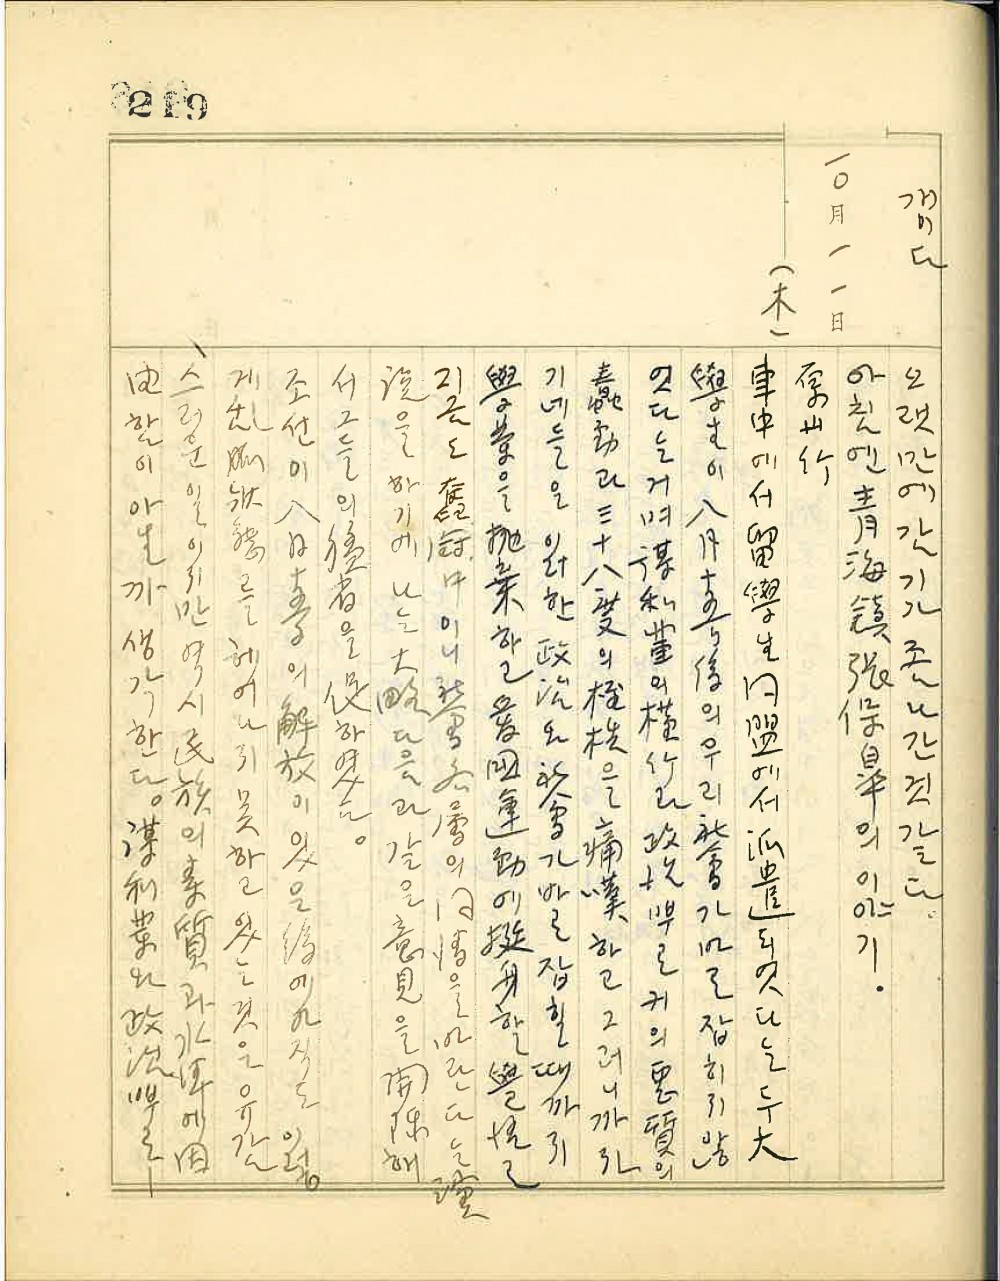 219
갬이다
一〇月 一一日
(木)
오랫만에 간 기가 존나간것 갈다。
아침엔 青海鎭 張保皐의 이야기!.
車中에서 留學生同盟에서 派遣되엿다는 두 大
學生이 八月 十五日後의 우리 社會가 바로 잡히지 않
엇다는 거며 謀利輩의 橫行과 政治 뿌로커의 惡質의
蠢動과 三十八度의 桎梏을 痛嘆하고 그러니까 自
기네들은 이러한 政治와 社會가 바로 잡힐 때까지
學業을 抛棄하고 愛國運動에 挺身할 覺悟로
지금도 奮鬪中이니 社會各層의 同情을 바란다는
說을 하기에 나는 大略 다음과 같은 意見을 開陳해
서 그들의 을 促하엿다。
조선이 八月 十五日의 解放이 있은 後에 아직도
게 狀態를 헤어나지 못하고 있는 것은 유감
스러운 일이지만 역시 民族의 素質과 에 因
由함이 아닐까 생각한다。謀利業와 政治뿌로ㅣ